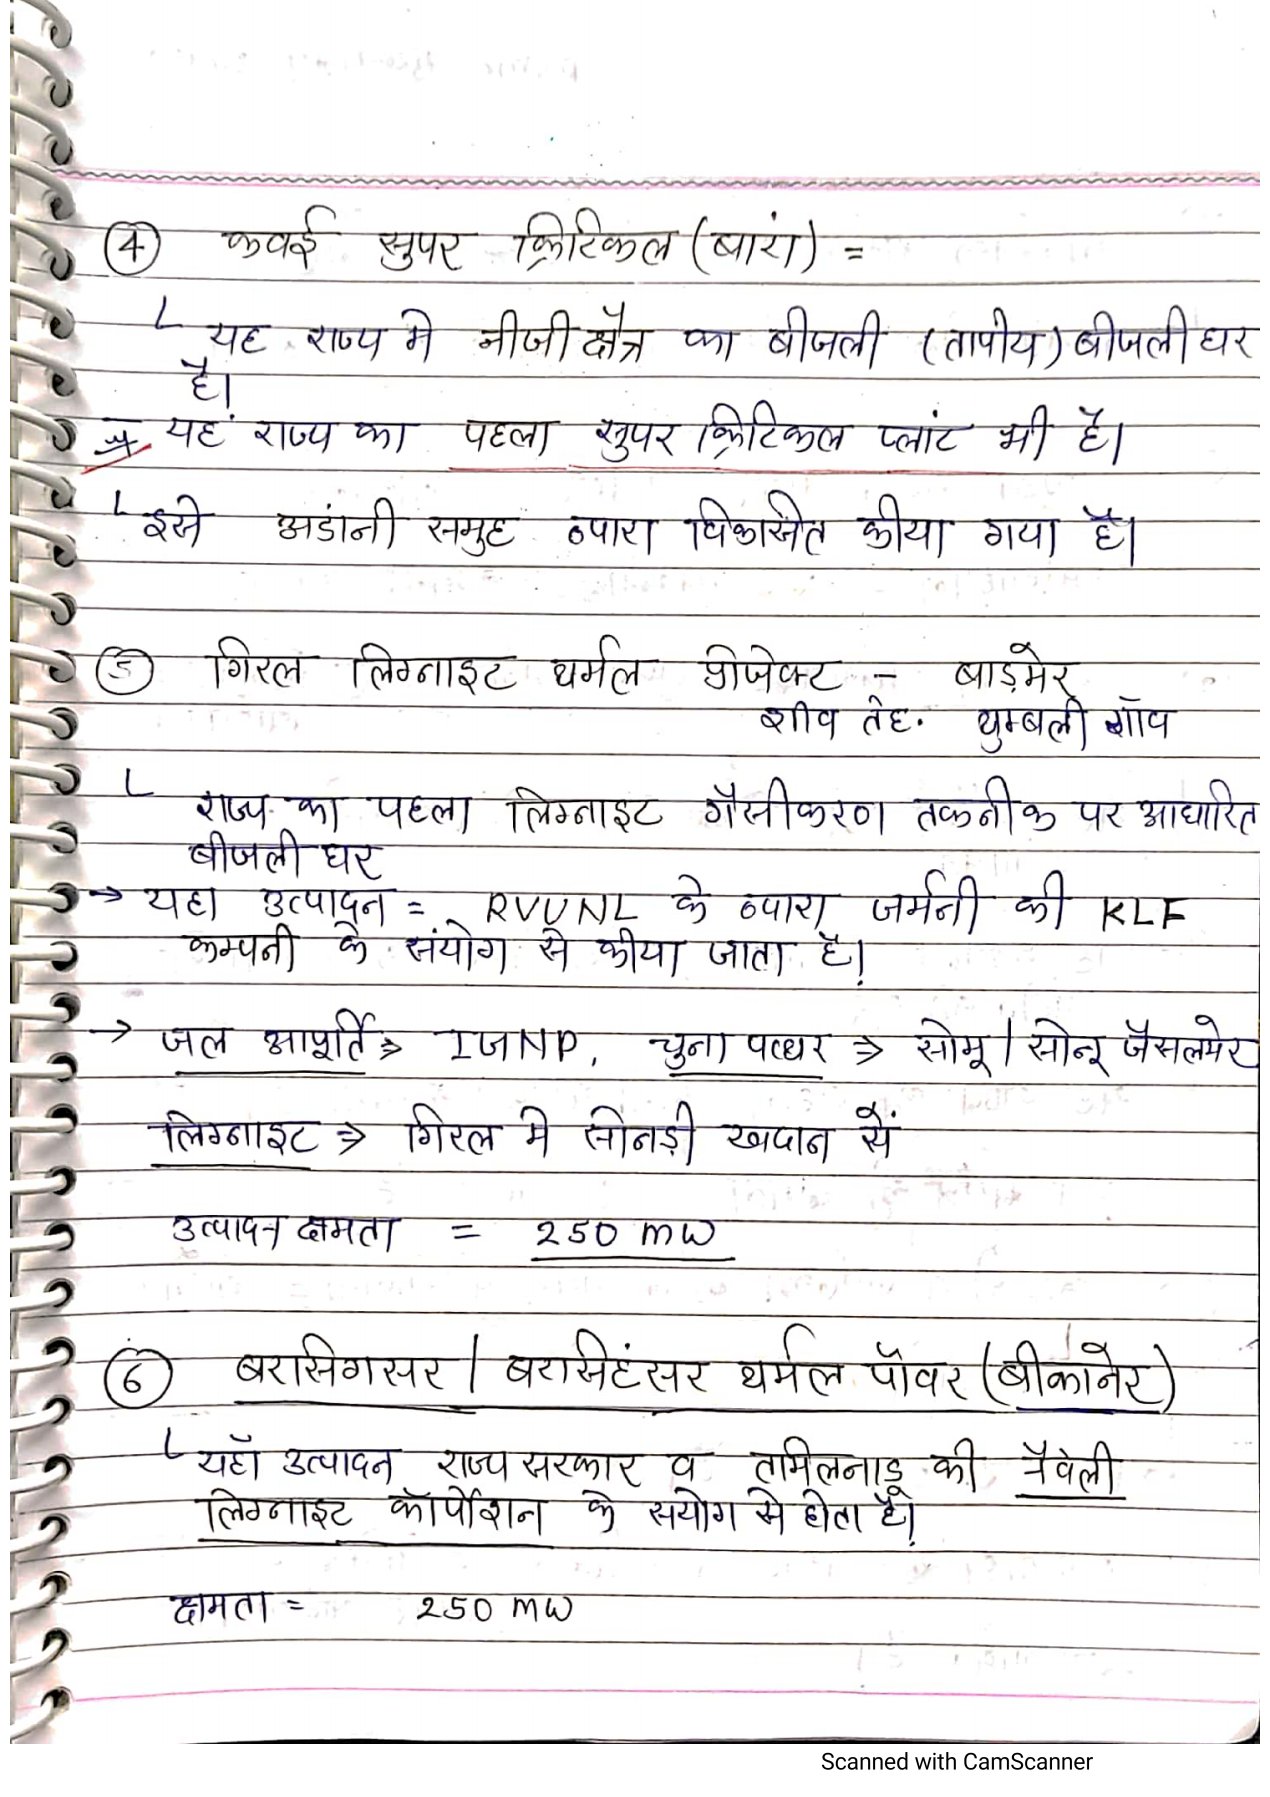 ④ कवई सुपर क्रिटिकल (बारां) =
└ यह राज्य मे नीजी क्षैत्र का बीजली (तापीय) बीजली घर
है।
→ यहं राज्य का पहला सुपर क्रिटिकल प्लांट भी है।
└ इसे अडांनी समुह व्दारा विकासीत कीया गया है।
⑤ गिरल लिग्नाइट थर्मल प्रोजेक्ट - बाड़मेर
शीव तेह. थुम्बली गॉव
└ राज्य का पहला लिग्नाइट गैसीकरण तकनीक पर आधारित
बीजली घर
→ यहा उत्पादन = RVUNL के व्दारा जर्मनी की KLF
कम्पनी के संयोग से कीया जाता है।
→ जल आपूर्ति ⇒ IGNP, चुना पत्थर ⇒ सोमू / सोन्दू जैसलमेर
लिग्नाइट ⇒ गिरल मे सोनड़ी खदान सें
उत्पादन क्षमता = 250 MW
⑥ बरासिंगसर / बरासिंहसर थर्मल पॉवर (बीकानेर)
└ यहॉ उत्पादन राज्य सरकार व तामिलनाडू की नैवेली
लिग्नाइट कॉर्पोरेशन के सयोग से होता है।
क्षमता = 250 MW
Scanned with CamScanner